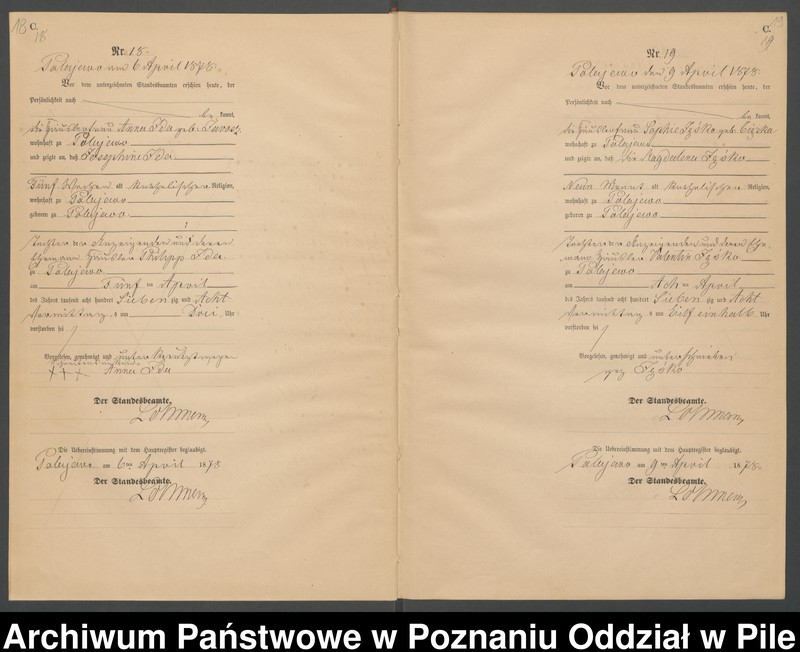 18
C.
18
Nr. 18.
Polajewo am 6 April 1878.
Vor dem unterzeichneten Standesbeamten erschien heute, der
Persönlichkeit nach
kannt,
die Häuslerfrau Anna Ida geb.
wohnhaft zu Polajewo
und zeigte an, daß Josephine Ida
Fünf Wochen alt katholischer Religion,
wohnhaft zu Polajewo
geboren zu Polajewo
Tochter der Anzeigenden und deren
Ehemann Häusler Philipp Ida
zu Polajewo
am Fünf ten April
des Jahres tausend acht hundert Sieben zig und Acht
Vormittag s um Drei Uhr
verstorben sei
Vorgelesen, genehmigt und unter
+++ Anna Ida
Der Standesbeamte.
Die Uebereinstimmung mit dem Hauptregister beglaubigt.
Polajewo am 6ten April 1878
Der Standesbeamte.
C.
19
Nr. 19
Polajewo den 9 April 1878.
Vor dem unterzeichneten Standesbeamten erschien heute, der
Persönlichkeit nach
kannt,
die Häuslerfrau Sophie geb.
wohnhaft zu Polajewo
und zeigte an, daß die Magdalena
Neun Monat alt katholischer Religion,
wohnhaft zu Polajewo
geboren zu Polajewo
Tochter der Anzeigenden und deren Ehe-
mann Häusler Valentin
zu Polajewo
am Ach ten April
des Jahres tausend acht hundert Sieben zig und Acht
Vormittag s um Eilf einhalb Uhr
verstorben sei
Vorgelesen, genehmigt und unterschrieben
gez
Der Standesbeamte.
Die Uebereinstimmung mit dem Hauptregister beglaubigt.
Polajewo am 9ten April 1878.
Der Standesbeamte.
Archiwum Państwowe w Poznaniu Oddział w Pile